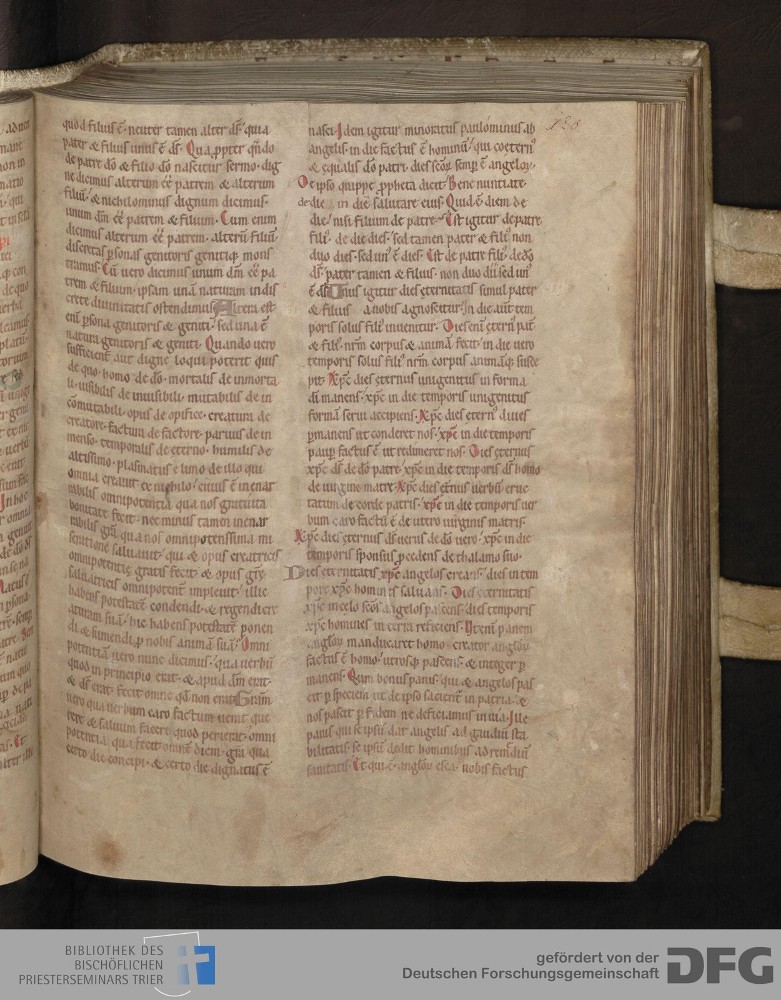 quod filius ē· neuter tamen alter ds̄· quia
pater & filius unus ē ds̄· Qua ꝓpter qn̄do
de patre dō & filio dō nascitur sermo· dig
ne dicimus alterum eē patrem & alterum
filiū· & nichilominus dignum dicimus·
unum dm̄ eē patrem & filium· Cum enim
dicimus alterum eē patrem· alterū filiū·
discretas ꝑsonas genitoris genitiq; mons
tramus· Cū uero dicimus unum dm̄ eē pa
trem & filium· ipsam unā naturam indis
crete diuinitatis ostendimus· Altera est
enī ꝑsona genitoris & geniti· sed una ē
natura genitoris & geniti· Quando uero
sufficient aut digne loqui poterit quis
de quo· homo de dō· mortalis de inmorta
li· uisibilis de inuisibili· mutabilis de in
cōmutabili· opus de opifice· creatura de
creatore· factum de factore· paruus de in
menso· temporalis de eterno· humilis de
altissimo· plasmatus e limo de illo qui
omnia creauit ex nichilo· cuius ē inenar
rabilis omnipotentia qua nos gratuita
bonitate fecit· nec minus tamen inenar
rabilis grā qua nos omnipotentissima mi
seratione saluauit· qui & opus creatricis
omnipotentis gratis fecit· & opus grē
saluatricis omnipotenter impleuit· illic
habens potestatē condendi· & regendi cre
aturam suā· hic habens potestatē ponen
di & sumendi ꝓ nobis animā suā· Omni
potentiā uero nunc dicimus· qua uerbū
quod in principio erat· & apud dm̄ erat·
& ds̄ erat· fecit omne qd̄ non erat· Grām
uero qua uerbum caro factum uenit que
rere & saluum facere quod perierat· omni
potentia qua fecit omnē diem· grā qua
certo die concipi· & certo die dignatus ē
138
nasci· Idem igitur minoratus paulominus ab
angelis· in die factus ē hominū· qui coeternꝰ
& equalis dō patri· dies scōꝝ semꝑ ē angeloꝝ·
De ipso quippe ꝓpheta dicit· Bene nuntiate·
de die in die salutare eius· Quid ē diem de
die· nisi filium de patre· Est igitur de patre
filiꝰ· de die dies· sed tamen pater & filiꝰ non
duo dies· sed unꝰ ē dies· Est de patre filiꝰ· de dō
ds̄· pater tamen & filius· non duo dii sed unꝰ
ē ds̄· Unus igitur dies eternitatis simul pater
& filius a nobis agnoscitur· In die aut̄ tem
poris solus filiꝰ inuenitur· Dies eni eternꝰ pat̄
& filiꝰ nr̄m corpus & animā fecit· in die uero
temporis solus filiꝰ nr̄m corpus animāq; susce
pit· Xp̄c dies eternus unigenitus in forma
dī manens· xp̄c in die temporis unigenitus
formā serui accipiens· Xp̄c dies eternꝰ diues
ꝑmanens ut conderet nos· xp̄c in die temporis
paupꝑ factus ē ut redimeret nos· Dies eternus
xp̄c ds̄ de dō patre· xp̄c in die temporis ds̄ homo
de uirgine matre· Xp̄c dies et̄nus uerbū eruc
tatum de corde patris· xp̄c in die temporis uer
bum caro factū ē de utero uirginis matris·
Xp̄c dies eternus ds̄ uerus de dō uero· xp̄c in die
temporis sponsus ꝓcedens de thalamo suo·
Dies eternitatis xp̄c angelos creans· dies in tem
pore xp̄c homines saluans· Dies eternitatis
xp̄c in celo scōs angelos pascens· dies temporis
xp̄c homines in terra reficiens· Itenī panem
angl̄oꝝ manducaret homo· creator angl̄oꝝ
factus ē homo· utrosq; pascens· & integer ꝑ
manens· Qum bonus panis· qui & angelos pas
cit ꝑ speciem ut de ipso sacientꝰ in patria· &
nos pascit ꝑ fidem ne deficiamus in uia· Ille
panis qui se ipsū dat angelis ad gaudiū sta
bilitatis· se ipsū dedit hominibus ad remediū
sanitatis· Et qui ē angl̄oꝝ esca· nobis factus
BIBLIOTHEK DES
BISCHÖFLICHEN
PRIESTERSEMINARS TRIER
gefördert von der
Deutschen Forschungsgemeinschaft
DFG